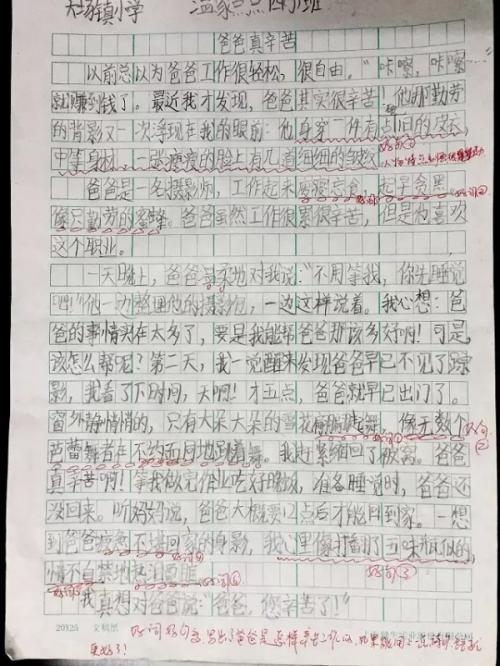 大场镇小学 温家 四班
爸爸真辛苦
以前总以为爸爸工作很轻松，很自由。“咔嚓，咔嚓
就赚到钱了。最近我才发现，爸爸其实很辛苦！他那勤劳
的背影又一次浮现在我的眼前：他身穿一件有点旧的皮衣，
中等身材，一张瘦瘦的脸上有几道细细的皱纹。
爸爸是一名摄影师，工作起来废寝忘食，起早贪黑
像只勤劳的蜜蜂。爸爸虽然工作很累很辛苦，但是他喜欢
这个职业。
一天晚上，爸爸温柔地对我说：“不用等我，你先睡觉
吧！”他一边整理他的摄影包，一边这样说着。我心想：爸
爸的事情实在太多了，要是我能帮爸爸那该多好啊！可是，
该怎么帮呢？第二天，我一觉醒来发现爸爸早已不见了踪
影，我看了下时间，天啊！才五点，爸爸就早已出门了。
窗外静悄悄的，只有大朵大朵的雪花翩翩起舞，像无数个
芭蕾舞者在不约而同地跳着舞。我赶紧缩回了被窝。爸爸
真辛苦啊！等我做完作业吃好晚饭，准备睡觉时，爸爸还
没回来。听妈妈说，爸爸大概要12点后才能回到家。一想
到爸爸疲惫不堪回家的身影，我心里像打翻了五味瓶似的，
情不自禁地热泪盈眶
好词⑤
好句③
我真想对爸爸说：“爸爸，您辛苦了！”
20×25 文稿纸
好词好句多，写出了爸爸是怎样辛苦工作的
更好了！